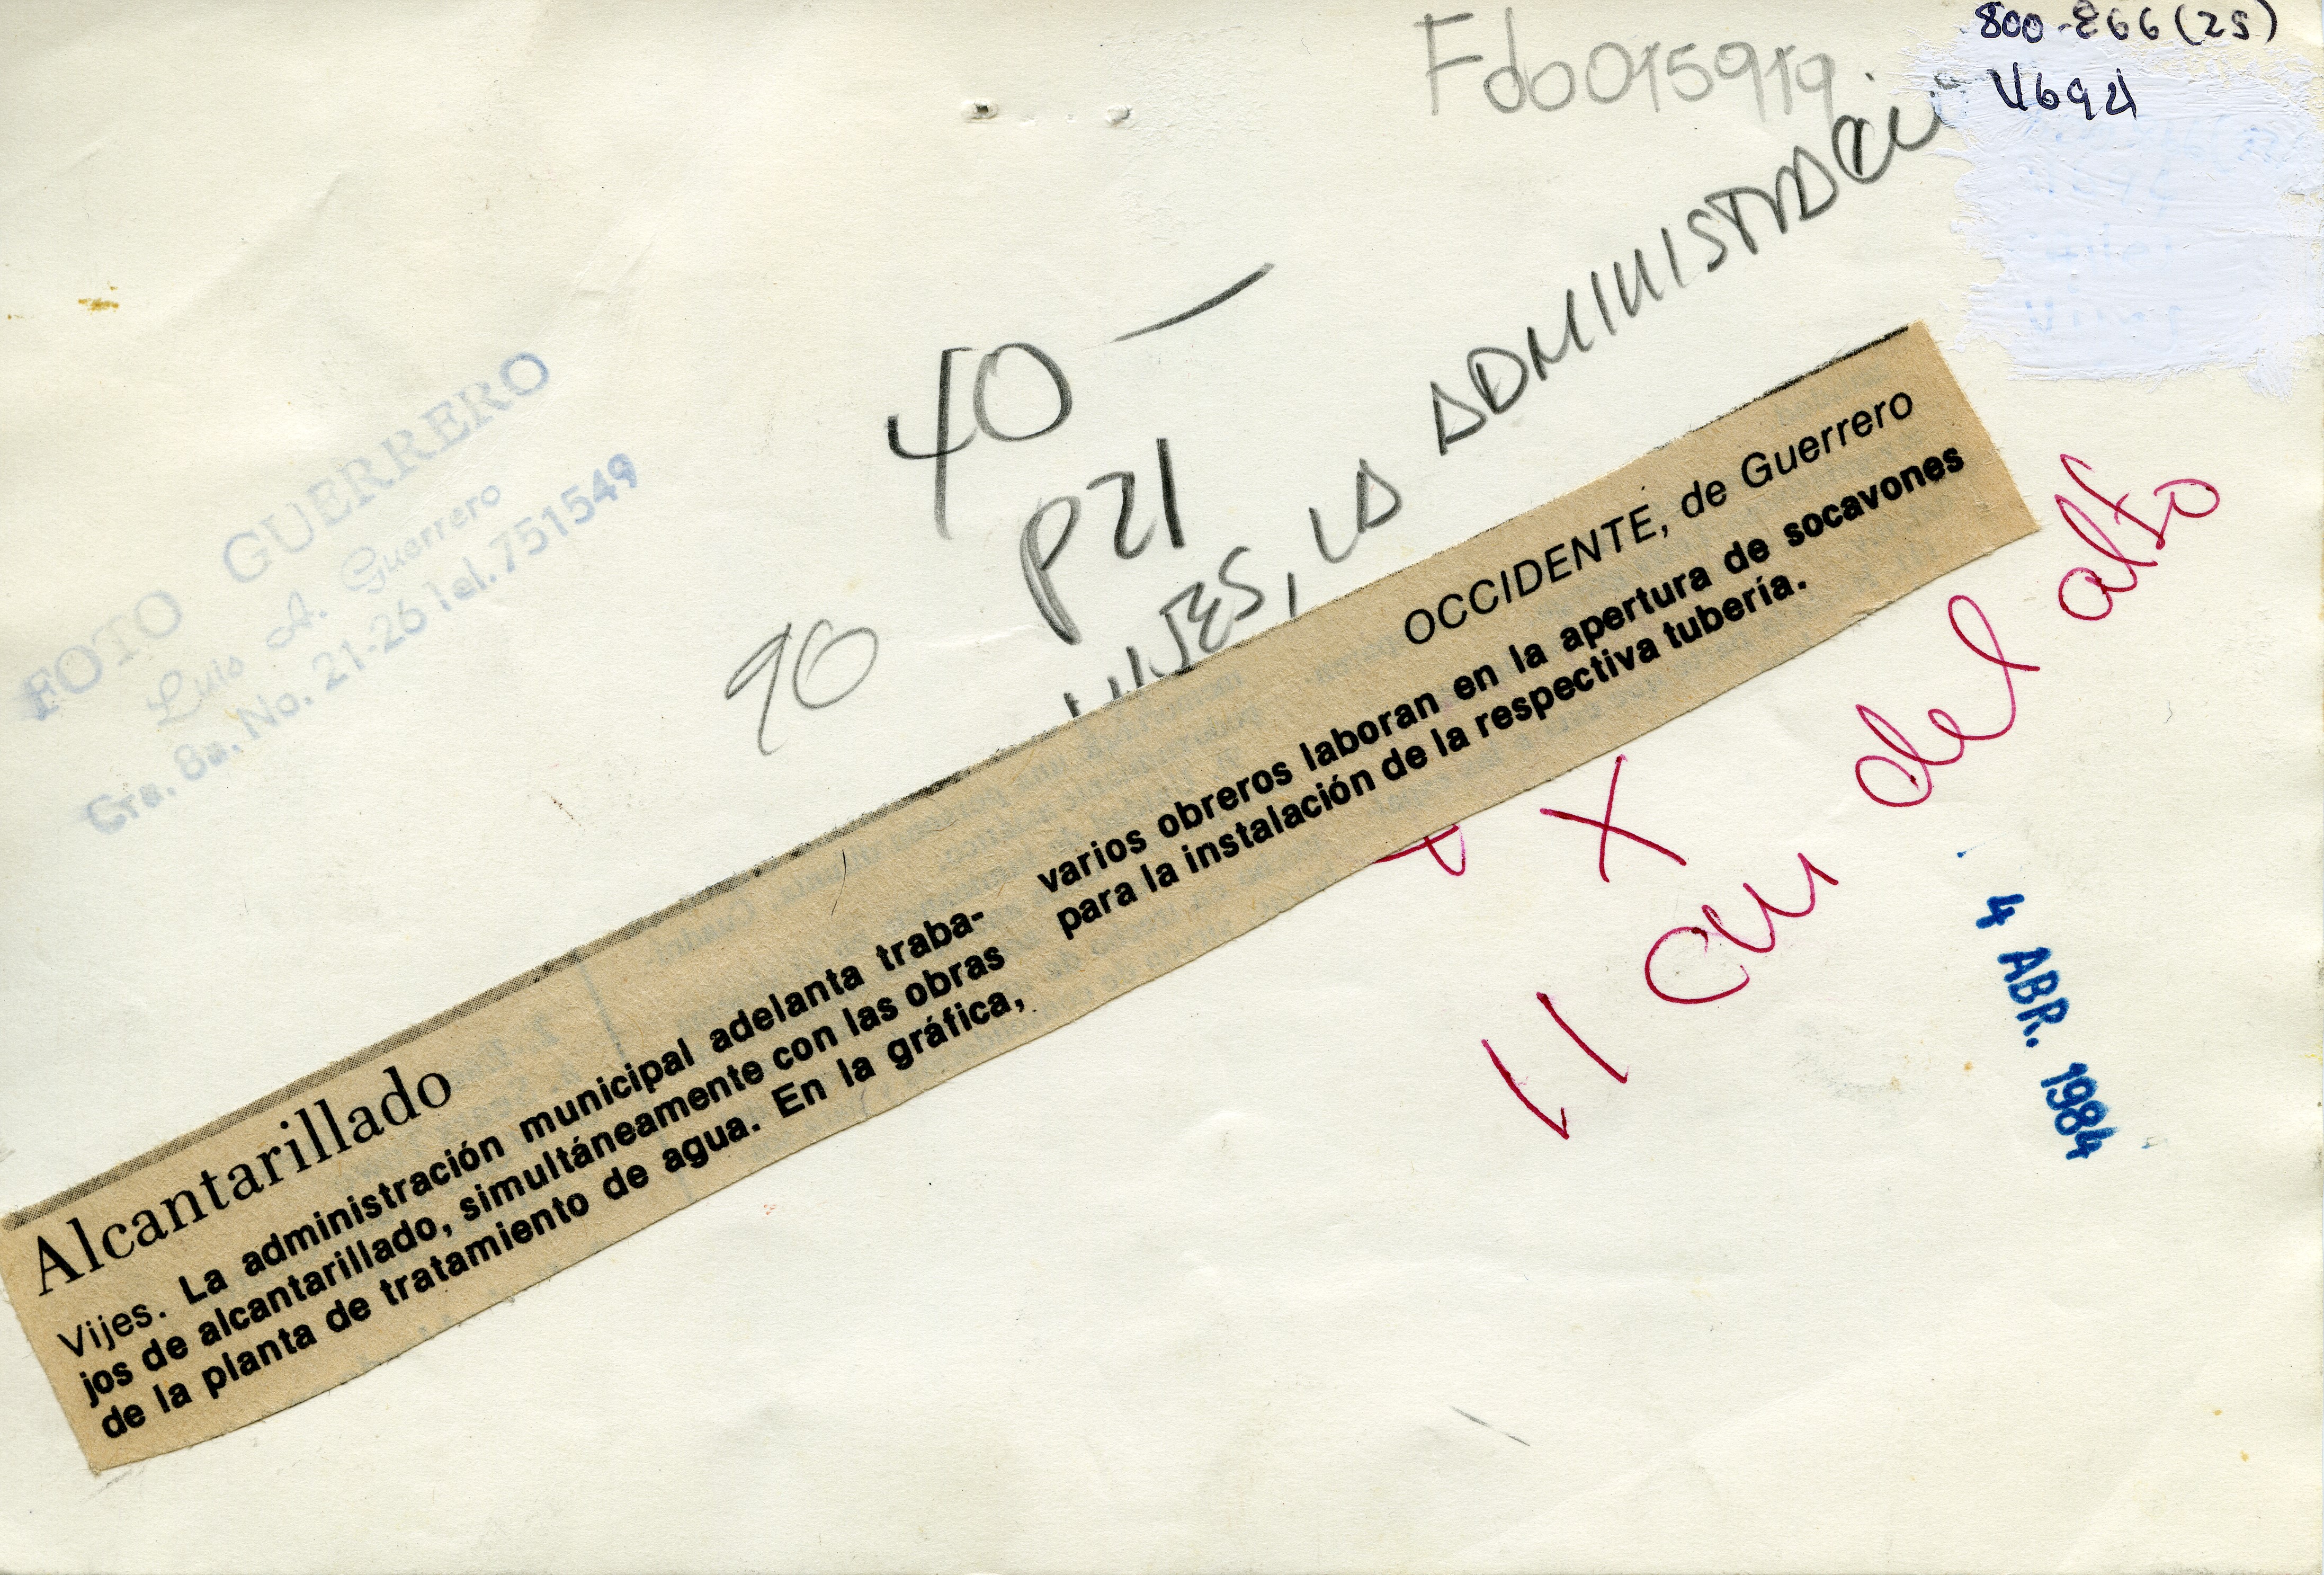 800-866(25)
V694
Fdo015919
40 —
P21
90
VIJES, LA ADMINISTRACIÓN
FOTO GUERRERO
Luis A. Guerrero
Cra. 8a. No. 21-26 Tel. 751549
OCCIDENTE, de Guerrero
Alcantarillado
Vijes. La administración municipal adelanta traba-
jos de alcantarillado, simultáneamente con las obras
de la planta de tratamiento de agua. En la gráfica,
varios obreros laboran en la apertura de socavones
para la instalación de la respectiva tubería.
X
11 cm del alto
4 ABR. 1984